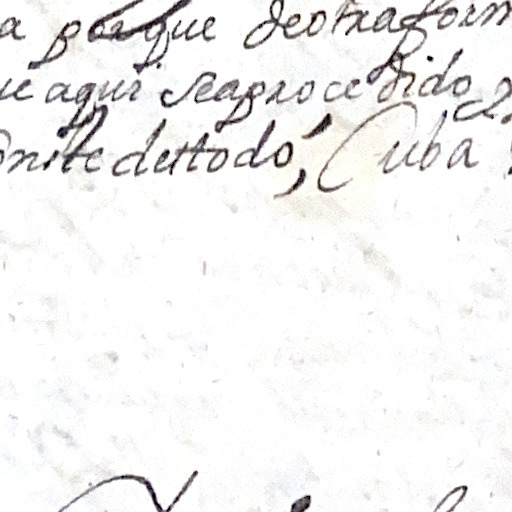 a porque deotraform
e aqui seaprocedido
mite deltodo, Cuba